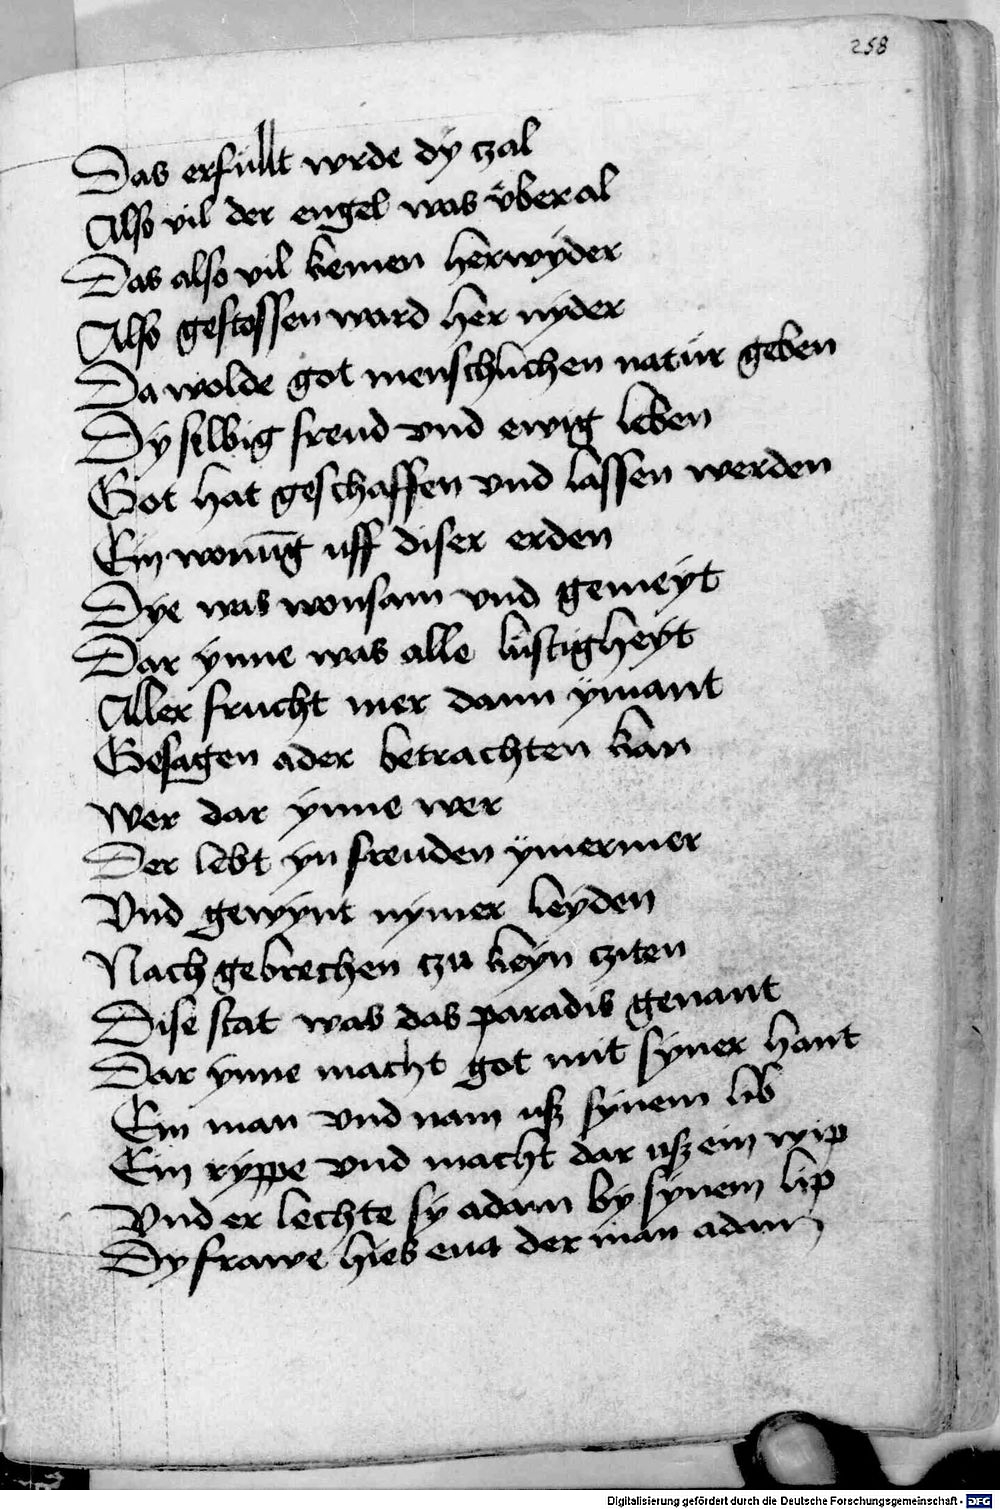 258
Das erfullt wrde dÿ czal
Also vil der engel was v̈ber al
Das also vil kemen herwÿder
Also gestossen ward her nÿder
Da wolde got menschlichen natúr geben
Dÿ selbig freud vnd ewig leben
Got hat geschaffen vnd lassen werden
Ein wonu̅g uff diser erden
Dye was wonsam vnd gemeÿt
Dar ÿnne was alle lustigheÿt
Aller frucht mer dann ÿmant
Gesagen ader betrachten kan
Wer dar ÿnne wer
Der lebt ÿn freuden ÿmermer
Vnd gewÿnt nÿmer leyden
Nach gebrechen czu keÿn cziten
Dise stat was das paradis genant
Dar ÿnne macht got mit sÿner hant
Ein man vnd nam usz sÿnem lib
Ein rÿppe vnd macht dar usz ein wip
Vnd er lechte sÿ adam bÿ sÿnem lip
Dÿ frawe hies eua der man adam
Digitalisierung gefördert durch die Deutsche Forschungsgemeinschaft - DFG